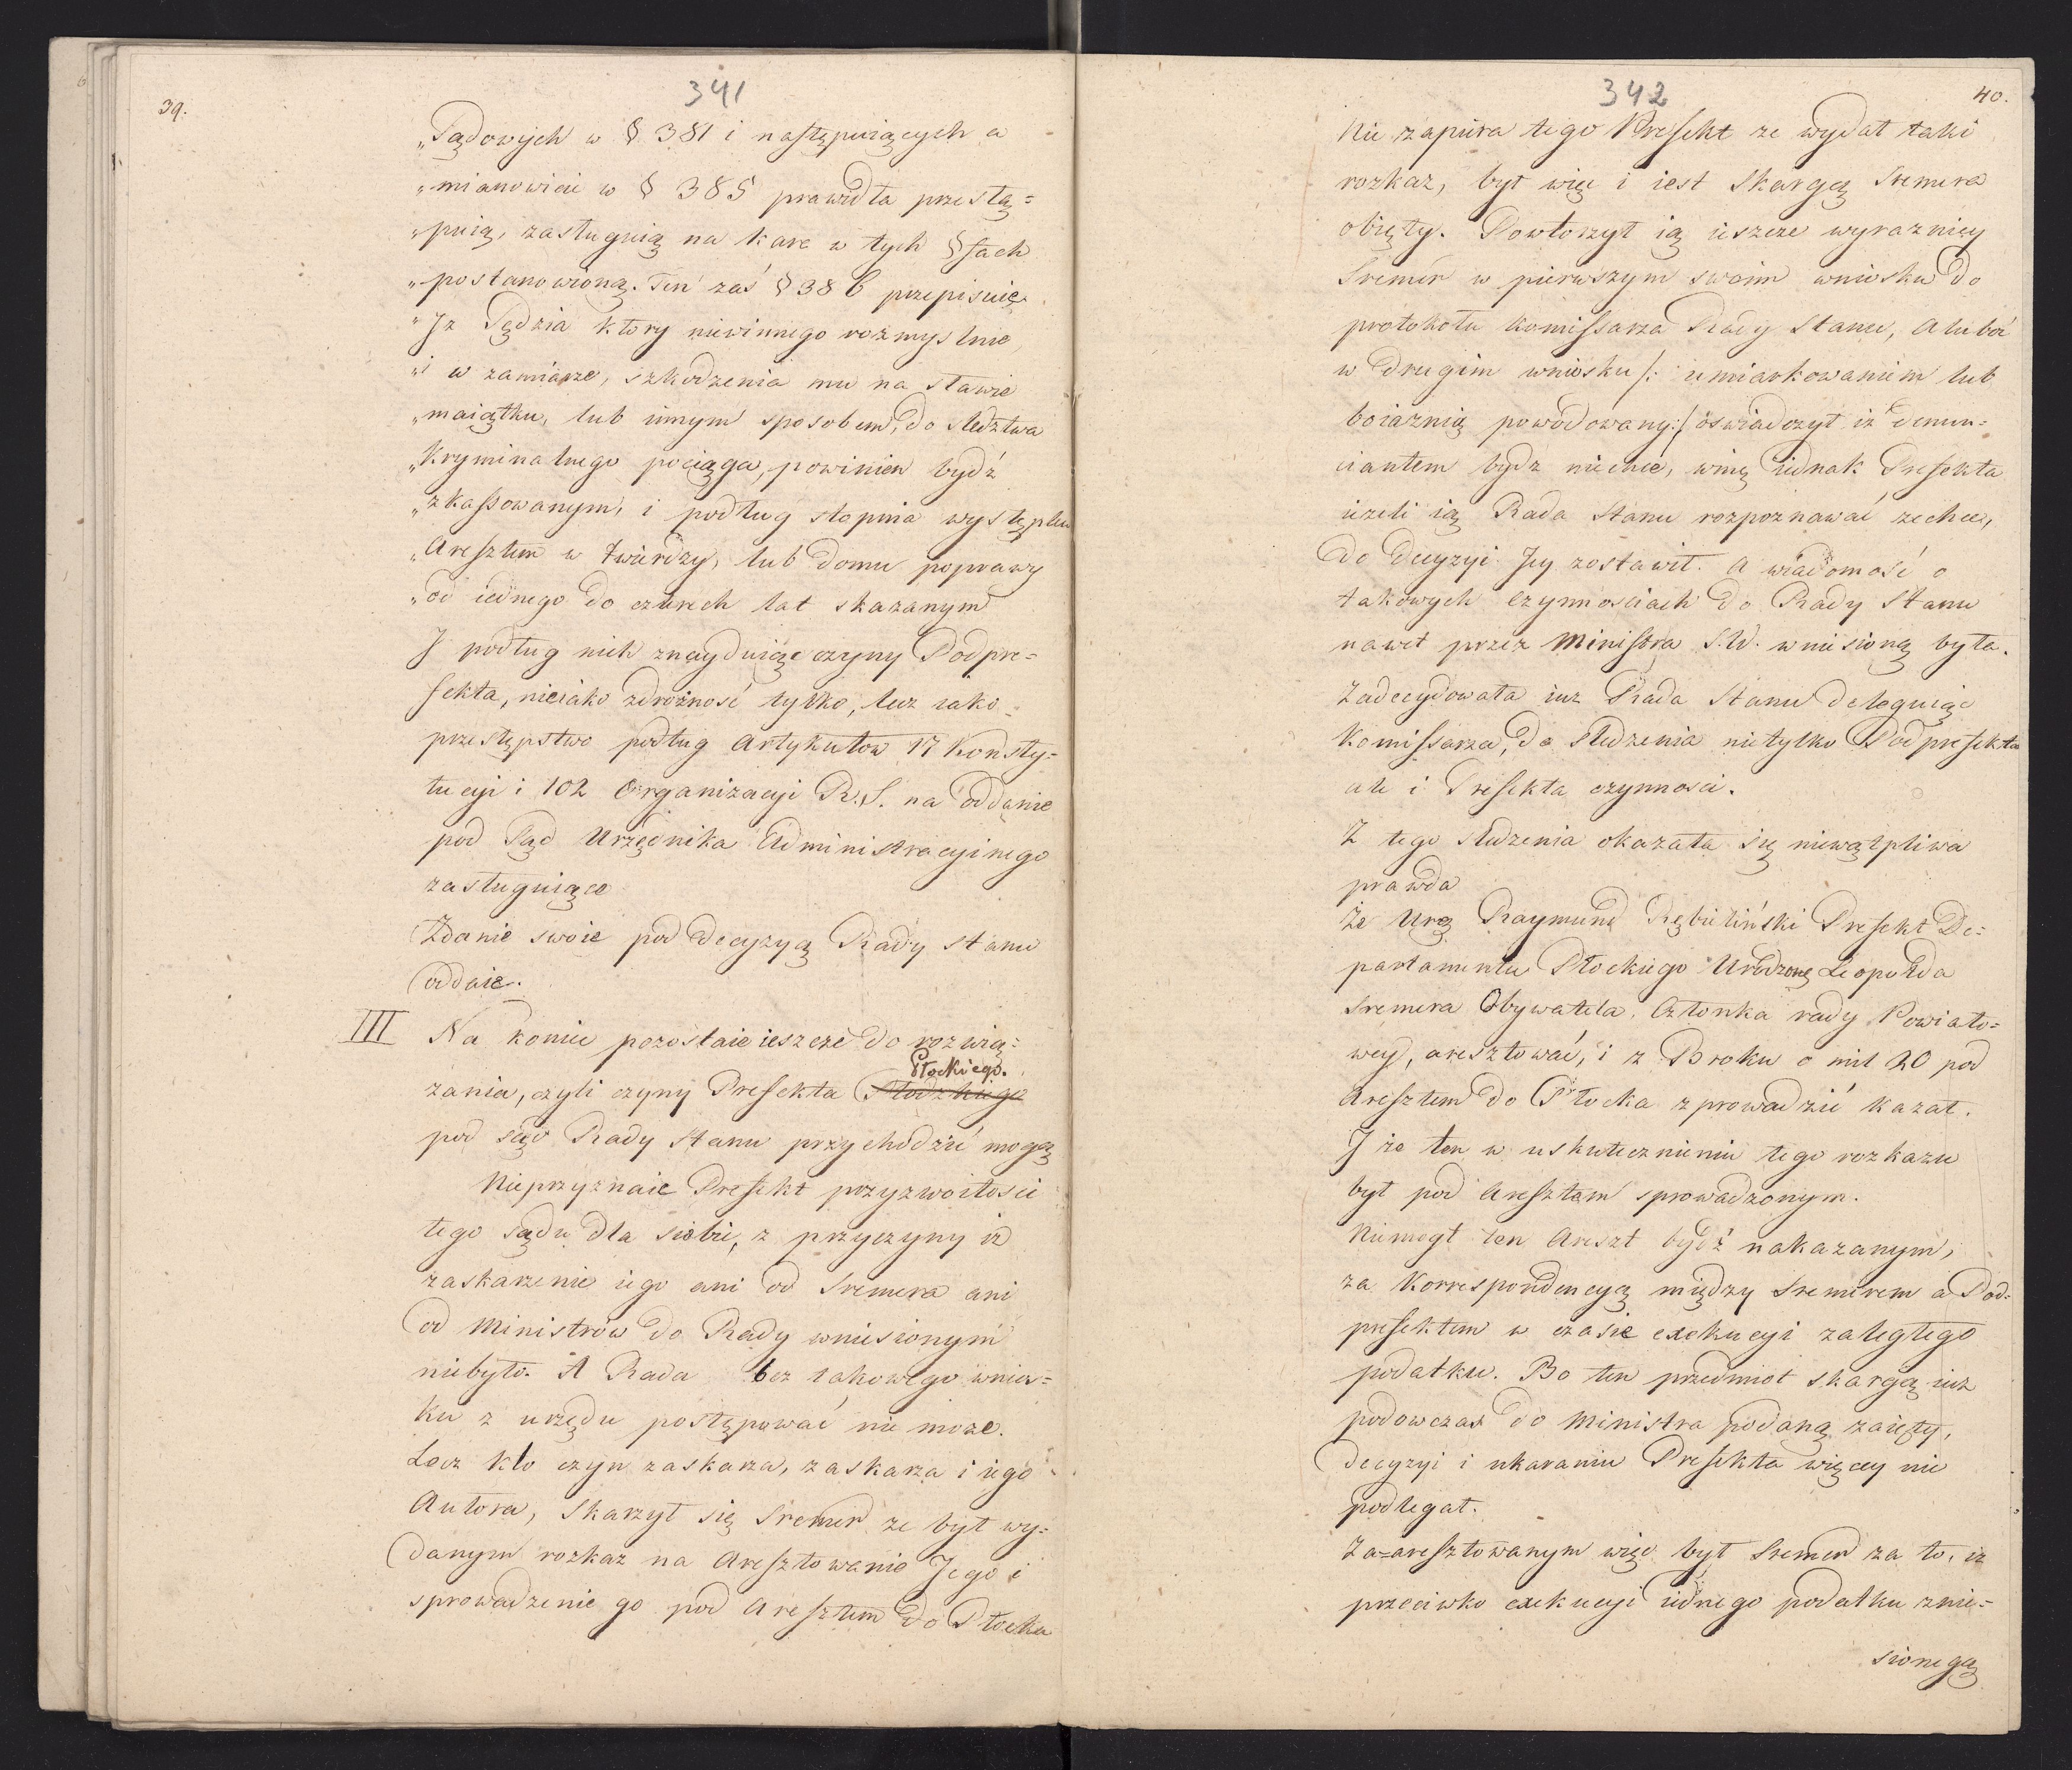 341
39.
„Sądowych w § 381 i następuiących a
„mianowicie w § 385 prawidła przestą=
„puią, zasługuią na karę w tych §fach
„postanowioną. Ten zaś § 386 przepisuie
„Jż Sędzia ktory niewinnego rozmyslnie
„i w zamiarze, szkodzenia mu na sławie
„maiątku, lub innym sposobem, do sledztwa
„Kryminalnego pociąga, powinien bydź
„zkassowanym, i podług stopnia występku
„Aresztem w twierdzy, lub domu poprawy
„od iednego do czterech lat skazanym
J podług nich znayduiąc czyny Podpre=
fekta, nieiako zdrożność tylko, lecz iako
przestępstwo podług Artykułow 17 Konsty=
tucyi i 102 Organizacyi R. S. na oddanie
pod Sąd Urzędnika Administracyinego
zasługuiące
Zdanie swoie pod decyzyą Rady stanu
oddaie.
III Na koniec pozostaie ieszcze do rozwią=
Płockiego.
zania, czyli czyny Prefekta Płodzkiego
pod sąd Rady Stanu przychodzić mogą
Nieprzyznaie Prefekt przyzwoitości
tego sądu dla siebie, z przyczyny iż
zaskarżenie iego ani od Sremera ani
od Ministrów do Rady wniesionym
niebyło. A Rada bez takowego wnios=
ku z urzędu postępować nie może.
Lecz kto czyn zaskarża, zaskarża i iego
Autora, Skarżył się Sremer że był wy=
danym rozkaz na Aresztowanie Jego i
sprowadzenie go pod Aresztem do Płocka
342
40.
Nie zapiera tego Prefekt ze wydał taki
rozkaz, był więc i iest Skargą Sremera
obięty. Powtorzył ią ieszcze wyrazniey
Sremer w pierwszym swoim wniosku do
protokołu Komissarza Rady Stanu, A lubo
w drugim wniosku /: umiarkowaniem lub
boiaznią powodowany :/ oświadczył iż denun=
ciantem bydz niechce, winę iednak Prefekta
ieżeli ią Rada Stanu rozpoznawać zechce,
do decyzyi Jey zostawił. A wiadomość o
takowych czynnosciach do Rady Stanu
nawet przez Ministra S. W. wniesioną była.
Zadecydowała iuz Rada Stanu deleguiąc
Komissarza, do sledzenia nietylko Podprefekta
ale i Prefekta czynnosci.
Z tego sledzenia okazała się niewątpliwa
prawda
Że Urg Raymund Rębieliński Prefekt De=
partamentu Płockiego Urodzong Leopolda
Sremera Obywatela, Członka rady Powiato=
wey, aresztować, i z Boroku o mil 20 pod
Aresztem do Płocka zprowadzić kazał.
J że ten w uskutecznieniu tego rozkazu
był pod Aresztem sprowadzonym.
Niemogł ten Areszt bydź nakazanym,
za Korrespondencyą między Sremerem a Pod=
prefektem w czasie exekucyi zaległego
podatku. Bo ten przedmiot skargą iuż
podowczas do Ministra podaną zaięty,
decyzyi i ukaraniu Prefekta więcey nie
podlegał.
Za=aresztowanym więc był Sremer za to, iż
przeciwko exekucyi iednego podatku znie=
sionego